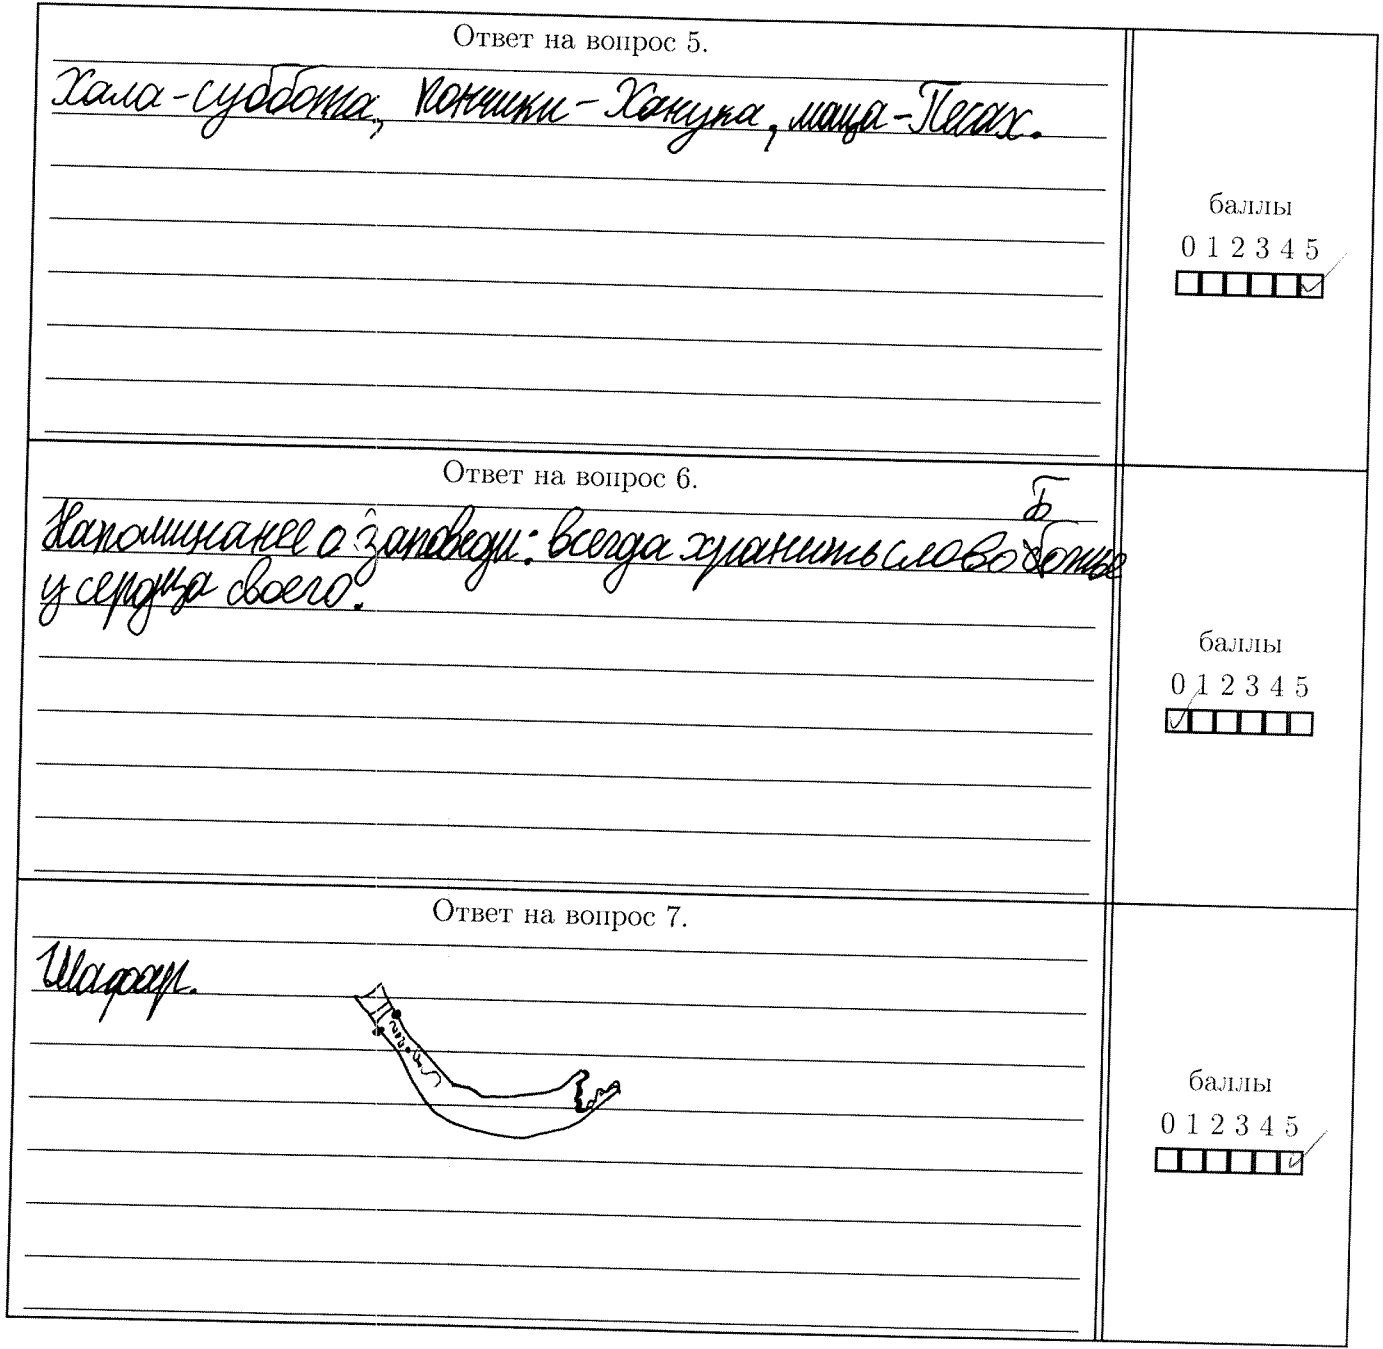 Ответ на вопрос 5.
Хала-суббота, пончики-Ханука, маца-Песах.
баллы
0 1 2 3 4 5
Ответ на вопрос 6.
Б
Напоминание о заповеди: всегда хранить слово божье
у сердца своего.
баллы
0 1 2 3 4 5
Ответ на вопрос 7.
Шафар.
баллы
0 1 2 3 4 5